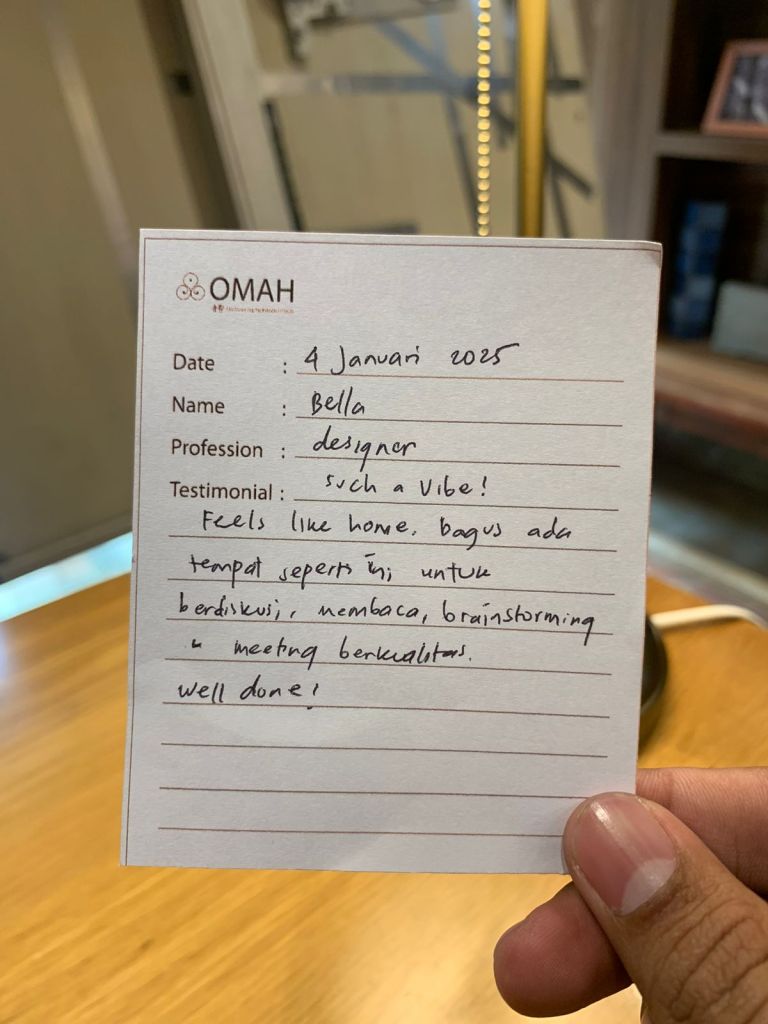 OMAH
Date : 4 Januari 2025
Name : Bella
Profession : designer
Testimonial : such a vibe!
Feels like home. bagus ada
tempat seperti ini untuk
berdiskusi, membaca, brainstorming
& meeting berkualitas.
well done!